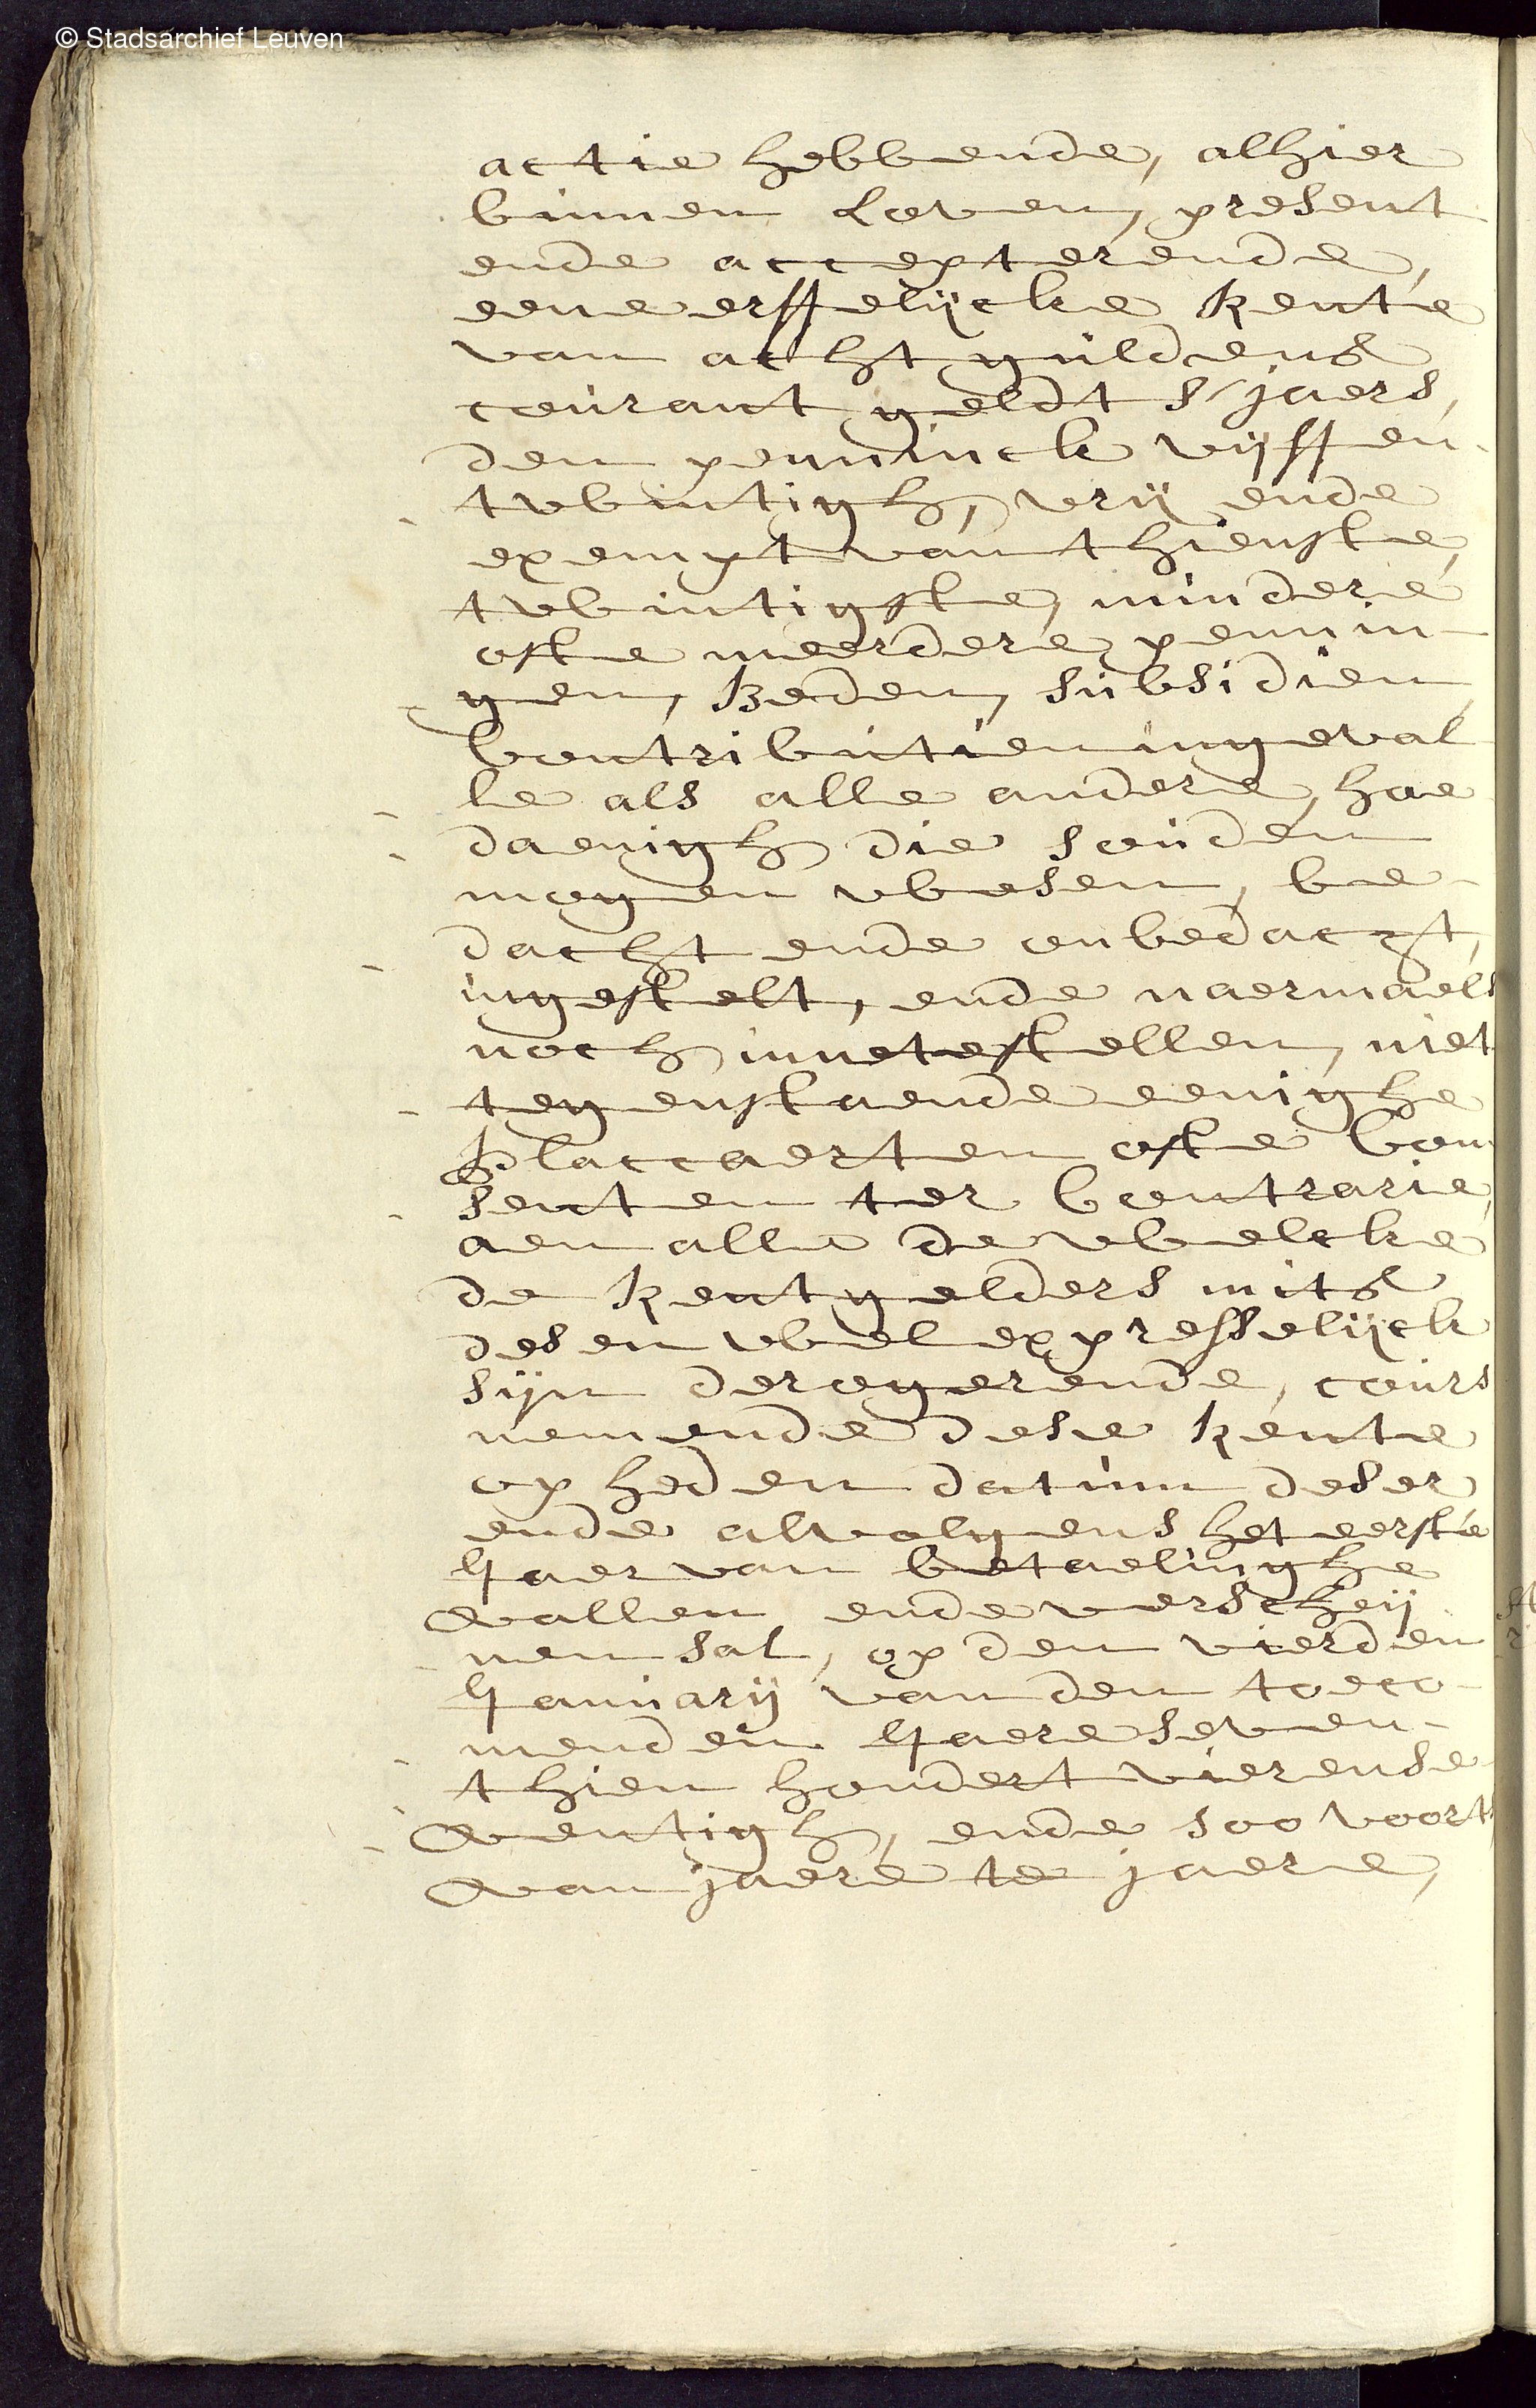 © Stadsarchief Leuven
actie hebbende, alhier
binnen Loven, present
ende accepterende,
eene erffelijcke Rente
van acht guldens
courant geldt s'jaers,
den penninck vijff en-
twintigh, vrij ende
exempt van thienste,
twintigste, mindere
ofte meerdere pennin-
gen, Beden, subsidien,
Contributien ingeval
le als alle andere, hoe
daenigh die souden
mogen wesen, be-
dacht ende onbedacht,
ingestelt, ende naermaels
noch innetestellen, niet
tegenstaende eenighe
Placcaerten ofte Con
senten ter Contrarie,
aen alle de welcke
de Rentgelders mits
desen wel expresselijck
sijn derogerende, cours
nemende dese Rente
op heden datum deser
ende alvolgens het eerste
Jaer van betaelinghe
vallen ende verscheij
nen sal, op den vierden
Januarij van den toeco-
menden Jaere seven-
thien hondert vierense
ventigh, ende soo voorts
van jaere te jaere,